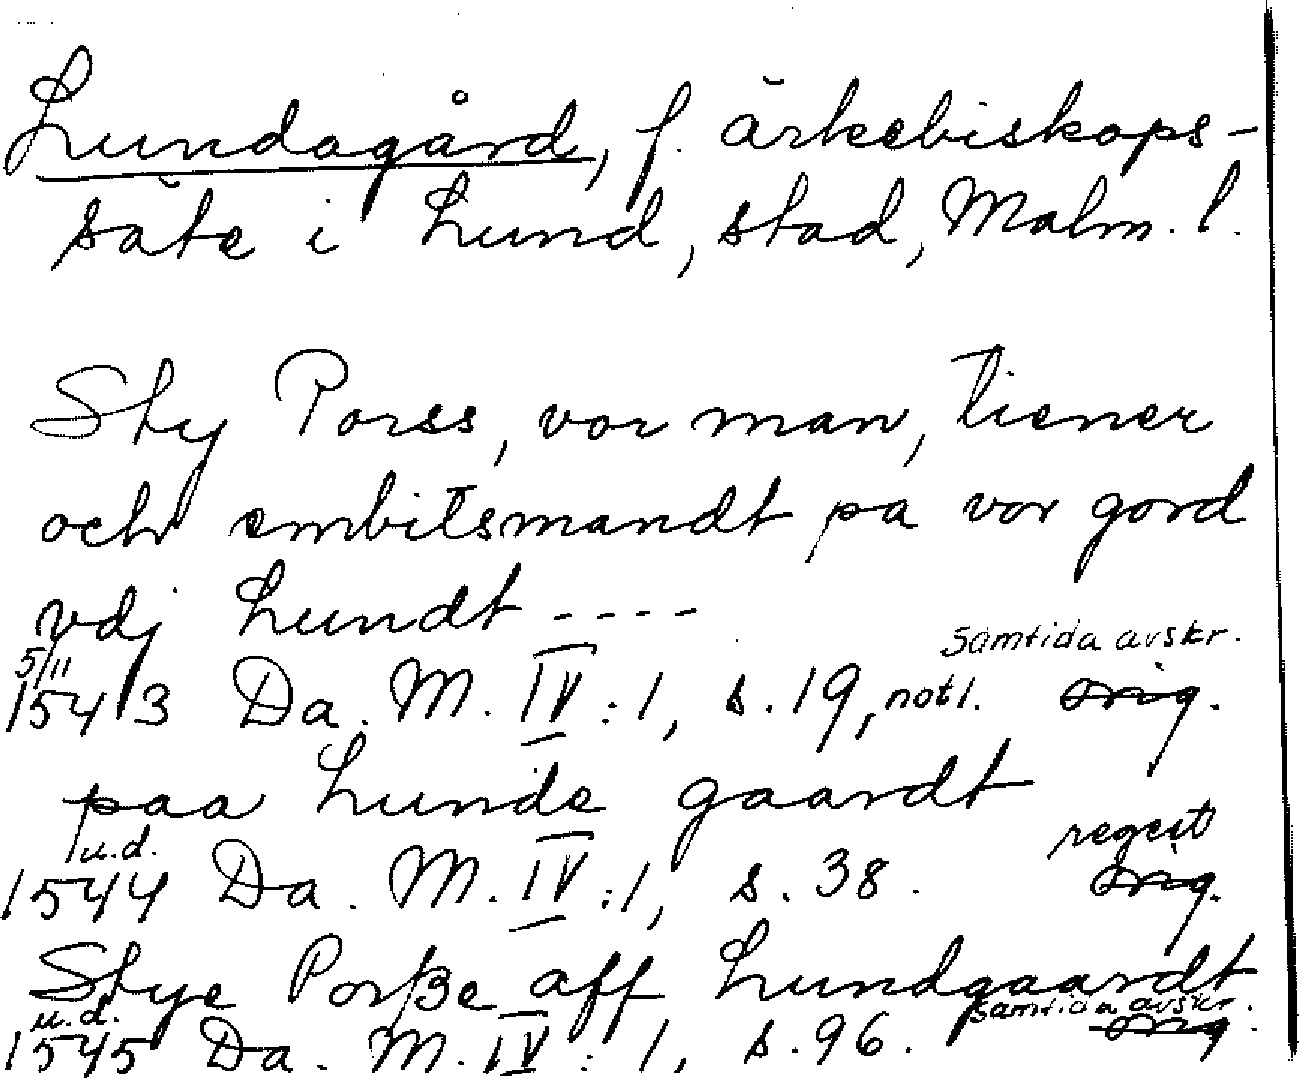 Lundagård, f. ärkebiskops-
säte i Lund, stad, Malm. l.
Sty Porss, vor man, tiener
och embitsmandt pa vor gord
vdj Lundt ----
samtida avskr.
5/11
1543 Da. M. IV:1, s. 19, not 1. orig.
paa Lunde gaardt
u.d. regest
1544 Da. M. IV:1, s. 38. orig.
Stye Porße aff Lundgaardt
u.d. samtida avskr.
1545 Da. M. IV:1, s. 96. orig.